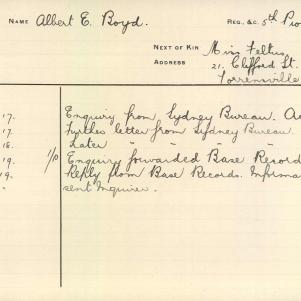 NAME Albert E. Boyd. REG. &C. 5th Pio
NEXT OF KIN Miss Feltus,
ADDRESS 21. Clifford St.
Torrensville
17. Enquiry from Sydney Bureau.
17. Further letter from Sydney Bureau.
18. Later " " "
19. I/P Enquiry forwarded Base Record
19. Reply from Base Records. Informa
" sent Inquirer.